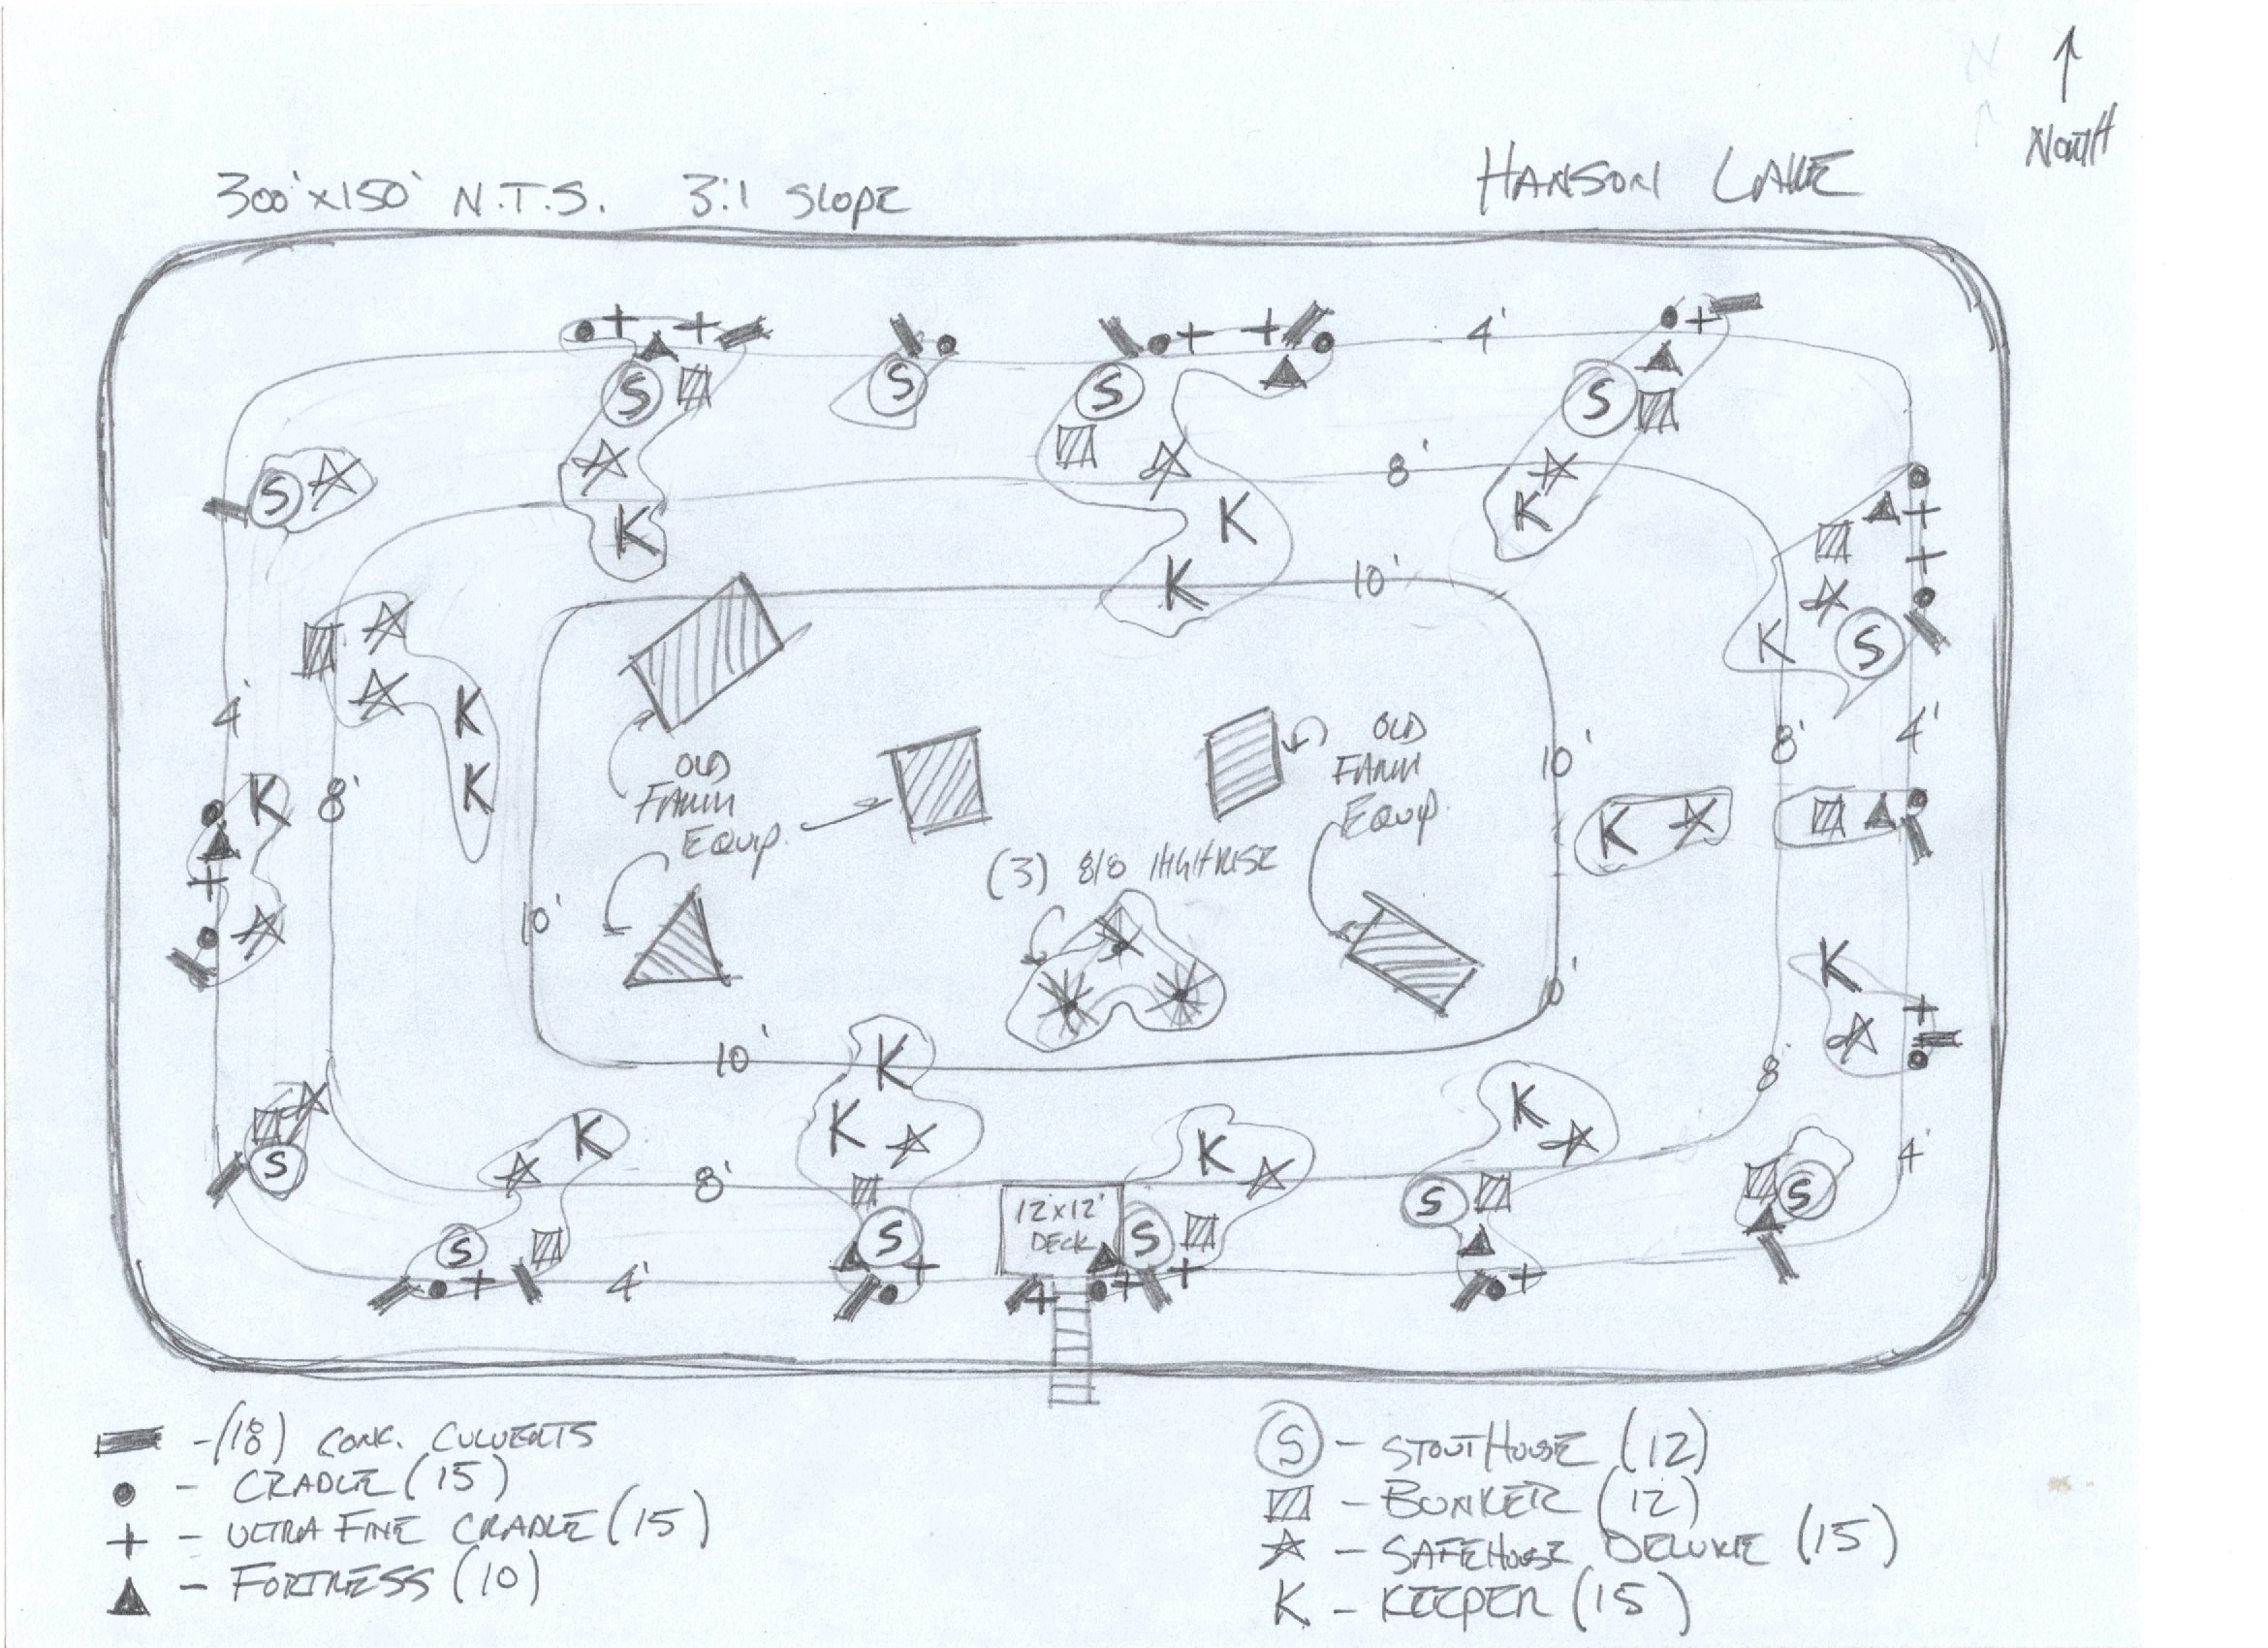 N
NORTH
300'x150' N.T.S. 3:1 SLOPE
HANSON LAKE
4'
8'
10'
S
S
S
S
S
S
K
K
K
K
K
K
K
4'
8'
K
K
10'
8'
4'
OLD
FARM
EQUIP.
OLD
FARM
EQUIP.
(3) 8/8 HIGHRISE
10'
10'
10'
8'
4'
K
K
K
K
K
K
K
8'
4'
S
S
S
S
S
S
12'x12'
DECK
- (18) CONC. CULVERTS
- CRADLE (15)
- ULTRA FINE CRADLE (15)
- FORTRESS (10)
S - STOUTHOUSE (12)
- BUNKER (12)
- SAFEHOUSE DELUXE (15)
K - KEEPER (15)